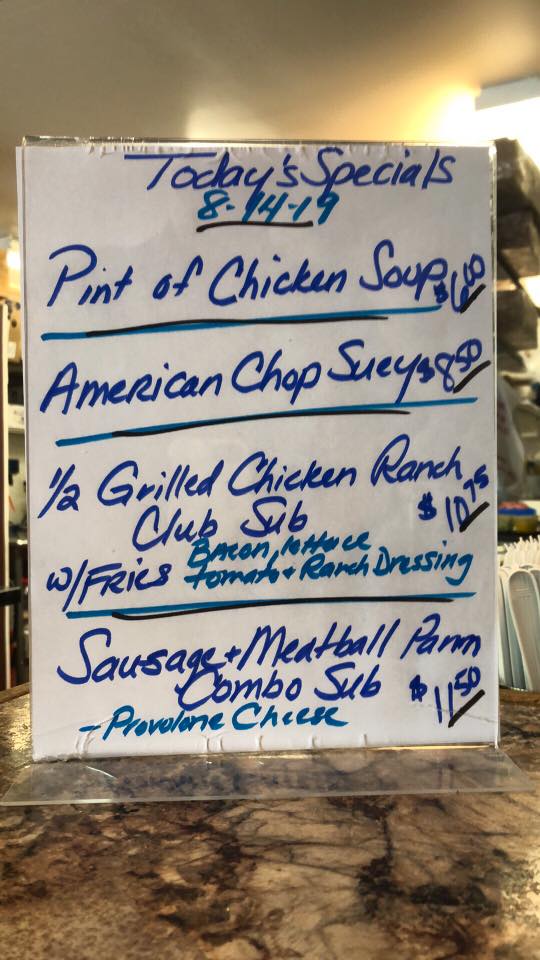 Today's Specials
8-14-19
Pint of Chicken Soup $6.00
American Chop Suey $8.50
1/2 Grilled Chicken Ranch
Club Sub $10.75
w/Fries Bacon, lettuce
tomato + Ranch Dressing
Sausage + Meatball Parm
Combo Sub $11.50
- Provolone Cheese